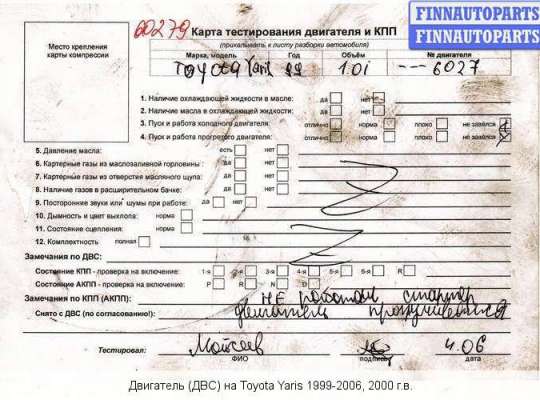 FINNAUTOPARTS
FINNAUTOPARTS
60279 Карта тестирования двигателя и КПП
(прикалывать к листу разборки автомобиля)
Место крепления
карты компрессии
Марка, модель Год Объём № двигателя
Toyota Yaris 99 1.0i ---6027
1. Наличие охлаждающей жидкости в масле: да нет
2. Наличие масла в охлаждающей жидкости: да нет
3. Пуск и работа холодного двигателя: отлично норма плохо не завёлся
4. Пуск и работа прогретого двигателя: отлично норма плохо не завёлся
5. Давление масла: есть нет
6. Картерные газы из маслозаливной горловины: да нет
7. Картерные газы из отверстия масляного щупа: да нет
8. Наличие газов в расширительном бачке: да нет
9. Посторонние звуки или шумы при работе: да нет
10. Дымность и цвет выхлопа: норма
11. Состояние сцепления: норма
12. Комплектность полная
Замечания по ДВС:
Состояние КПП - проверка на включение: 1-я 2-я 3-я 4-я 5-я 6-я R
Состояние АКПП - проверка на включение: P R N D
Замечания по КПП (АКПП): не работает стартер
Снято с ДВС (по согласованию!): двигатель прокручивался
Тестировал: Мойсеев 4.06
ФИО подпись дата
Двигатель (ДВС) на Toyota Yaris 1999-2006, 2000 г.в.